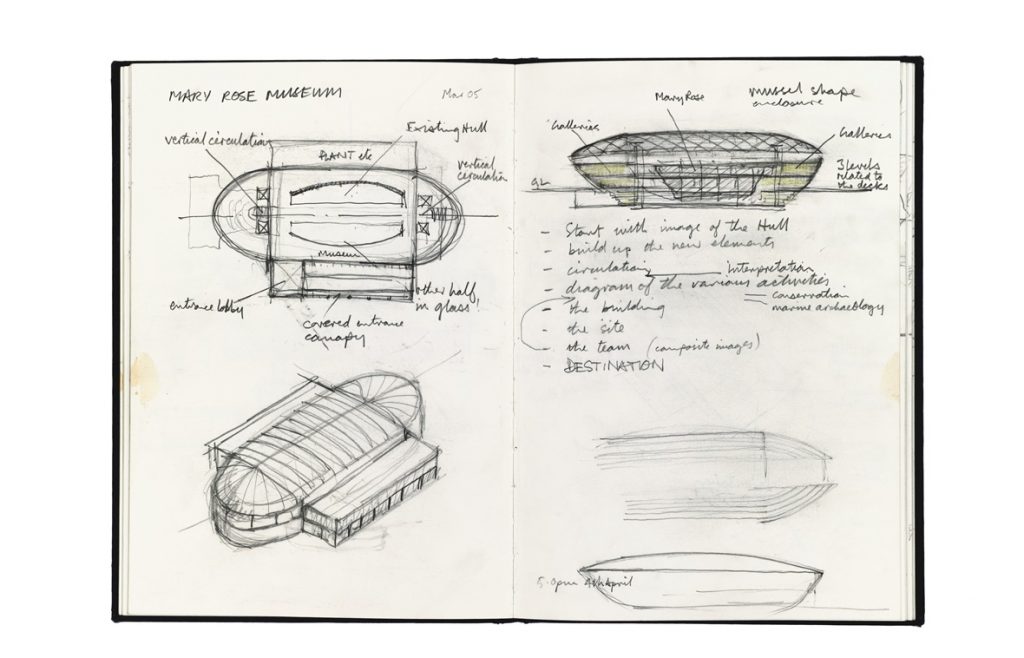 MARY ROSE MUSEUM
Mar 05
vertical circulation
Existing Hull
PLANT etc
vertical
circulation
museum
entrance lobby
other half
in glass!
covered entrance
canopy
Mary Rose
mussel shape
enclosure
Galleries
Galleries
3 levels
related to
the decks
GL
- Start with image of the Hull
- build up the new elements
- circulation interpretation
- diagram of the various activities
conservation
marine archaeology
- the building
- the site
- the team (composite images)
- DESTINATION
5.0pm 4th April